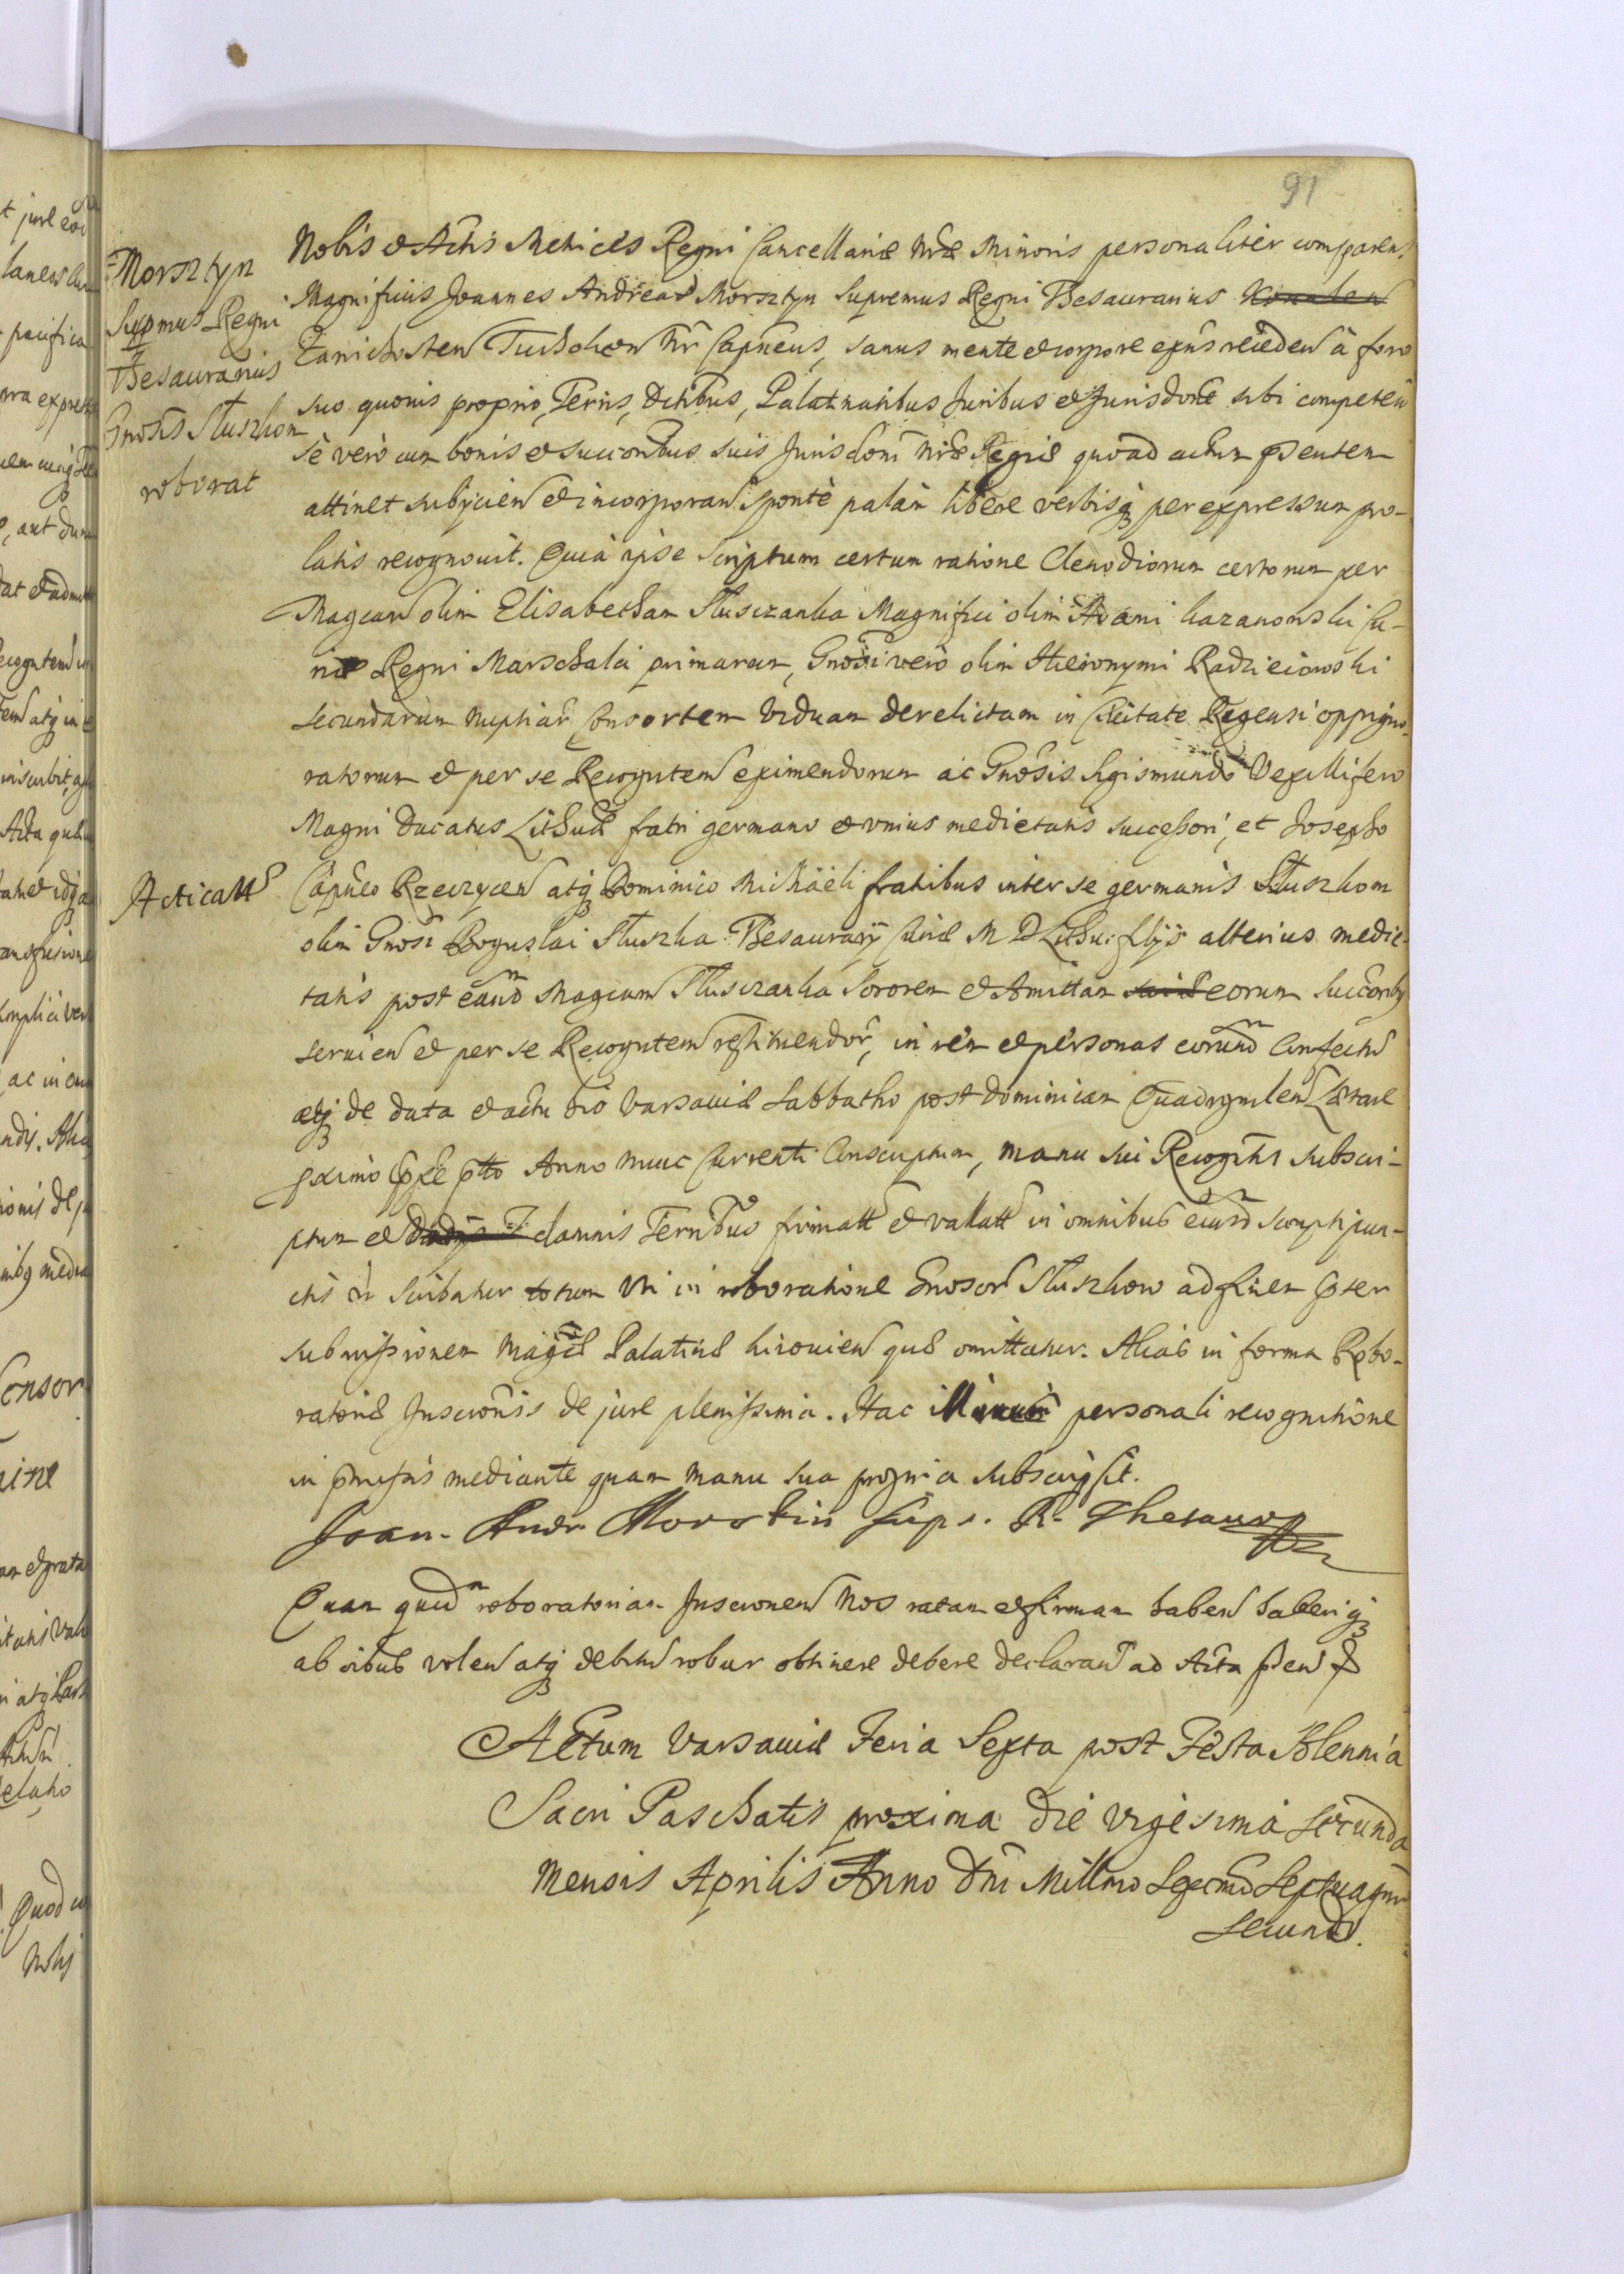 91
Morsztyn
Suppmus Regni
Thesaurarius
Gnosis Sluszkom
roborat
Nobis et Actis Metrices Regni Cancellariæ Nræ Minoris personaliter comparens
Magnificus Joannes Andreas Morsztyn Supremus Regni Thesaurarius
Zawichosten Tucholien Nr Capneus, sanus mente et corpore exns receden à foro
suo quovis proprio, Terris, Dctibus, Palatinatibus Juribus et Jurisdone sibi competen
sè verò cum bonis et succoribus suis Jurisdoni Nræ Regiæ quoad actum psentem
attinet subijcien et incorporan spontè palàm liberè verbisq per expressum pro-
latis recognovit. Quià ipse scriptum certum ratione Clenodiorum certorum per
Magcam olim Elisabetham Sluszczanka Magnifici olim Adami Kazanowski Cu-
riæ Regni Marschalci primarum, Gnosi verò olim Hieronymi Radzieiowski
secundarum nuptiar Consortem Viduam derelictam in Civitate Regensi oppigno-
ratorum et per se Recognten eximendorum ac Gnosis Sigismundo Vexillifero
Magni Ducatus Lithuæ fratri germano et unius medietatis successori, et Josepho
Acticatt
Capneo Rzeczycen atq Dominico Michaëli fratribus inter se germanis Sluszkom
olim Gnosi Boguslai Sluszka Thesaurarij Curiæ M D Lithu: filijs alterius medie-
tatis post eand Magcam Sluszczanka Sororem et Amittam eorum succoribq
servien et per se Recognten restituendor, in rem et personas eorund confectu
atq de data et actu hic Varsaviæ Sabbatho post Dominicam Quadragmlem Lætare
pximo Anno nunc currenti conscriptum, manu sui Recogntis subscri-
ptum et damnis Terribus firmatt et vallatt in omnibus eiusd scripti pun-
ctis scribatur totum uti in roboratione Gnosor Sluszkow ad finem pter
submissionem Magcæ Palatinæ Kiiovien quæ omittatur. Alias in forma Robo-
rationis Inscronis de jure plenissima. Hac personali recognitione
in pmissis mediante quam manu sua propria subscripsit.
Joan. Andr. Morstin Sup. R. Thesaur
Quam quid roboratoriam Inscronem Nos ratam et firmam haben haberiq
ab oibus volen atq debitu robur obtinere debere declaran ad Acta psen
Actum Varsaviæ Feria Sexta post Festa Solennia
Sacri Paschatis proxima Die Vigesima Secunda
Mensis Aprilis Anno Dni Millmo Sexcmo Septuagmo
Secundo.